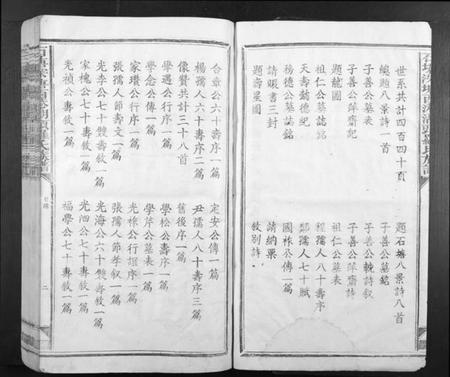 世系共計四百四十頁
總題八景詩一首
子善公墓表
子善公輓齋記
祖仁公墓誌銘
題龍圖
天壽鏞德紀
務德公墓誌銘
請賑書三封
題壽星圖
題石塘八景詩八首
子善公墓銘
子善公輓詩敘
子善公齋詩
祖仁公墓表
程孺人八十壽序
孺人七十賦
國公傳一篇
請納粟
敘別詩
合章公六十壽序一篇
楊孺人六十壽序二篇
像贊共計三十八首
學遇公行序一篇
學念公傳一篇
家環公行序一篇
張孺人節壽文一篇
光李公七十雙壽敘一篇
家槐公七十壽敘一篇
光禎公壽敘一篇
定安公傳一篇
尹孺人八十壽序三篇
舊後序一篇
學松公壽序一篇
學芹公墓表一篇
光公行誼序一篇
張孺人節孝敘一篇
光海公六十雙壽敘一篇
光泗公七十壽敘一篇
福學公七十壽敘一篇
二